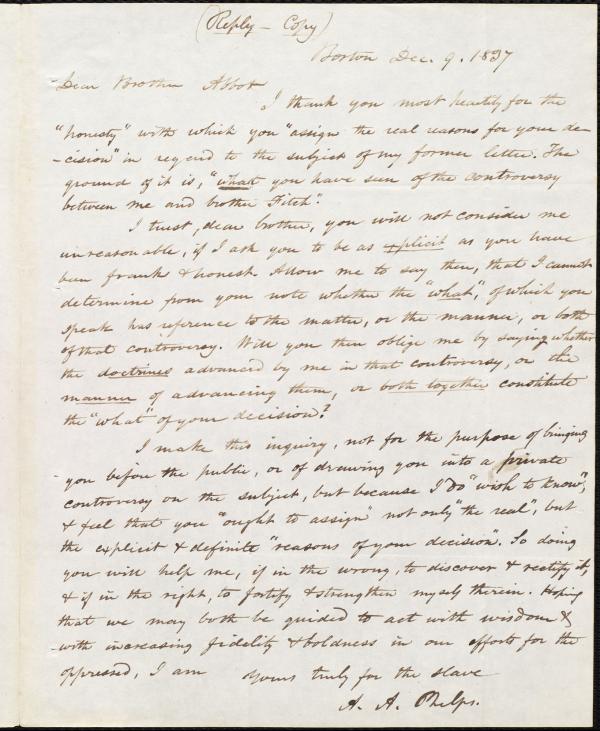 (Reply - Copy)
Boston Dec. 9. 1837
Dear Brother Abbot
I thank you most heartily for the
"honesty" with which you "assign the real reasons for your de-
-cision" in regard to the subject of my former letter. The
ground of it is, "what you have seen of the controversy
between me and brother Fitch".
I trust, dear brother, you will not consider me
unreasonable, if I ask you to be as explicit as you have
been frank & honest. Allow me to say then, that I cannot
determine from your note whether the "what", of which you
speak has reference to the matter, or the manner, or both
of that controversy. Will you then oblige me by saying whether
the doctrines advanced by me in that controversy, or the
manner of advancing them, or both together constitute
the "what" of your decision?
I make this inquiry, not for the purpose of bringing
you before the public, or of drawing you into a private
controversy on the subject, but because I do "wish to know",
& feel that you "ought to assign" not only "the real", but
the explicit & definite "reasons of your decision". So doing
you will help me, if in the wrong, to discover & rectify it,
& if in the right, to fortify & strengthen myself therein. Hoping
that we may both be guided to act with wisdom &
with increasing fidelity & boldness in our efforts for the
oppressed, I am yours truly for the slave
A. A. Phelps.